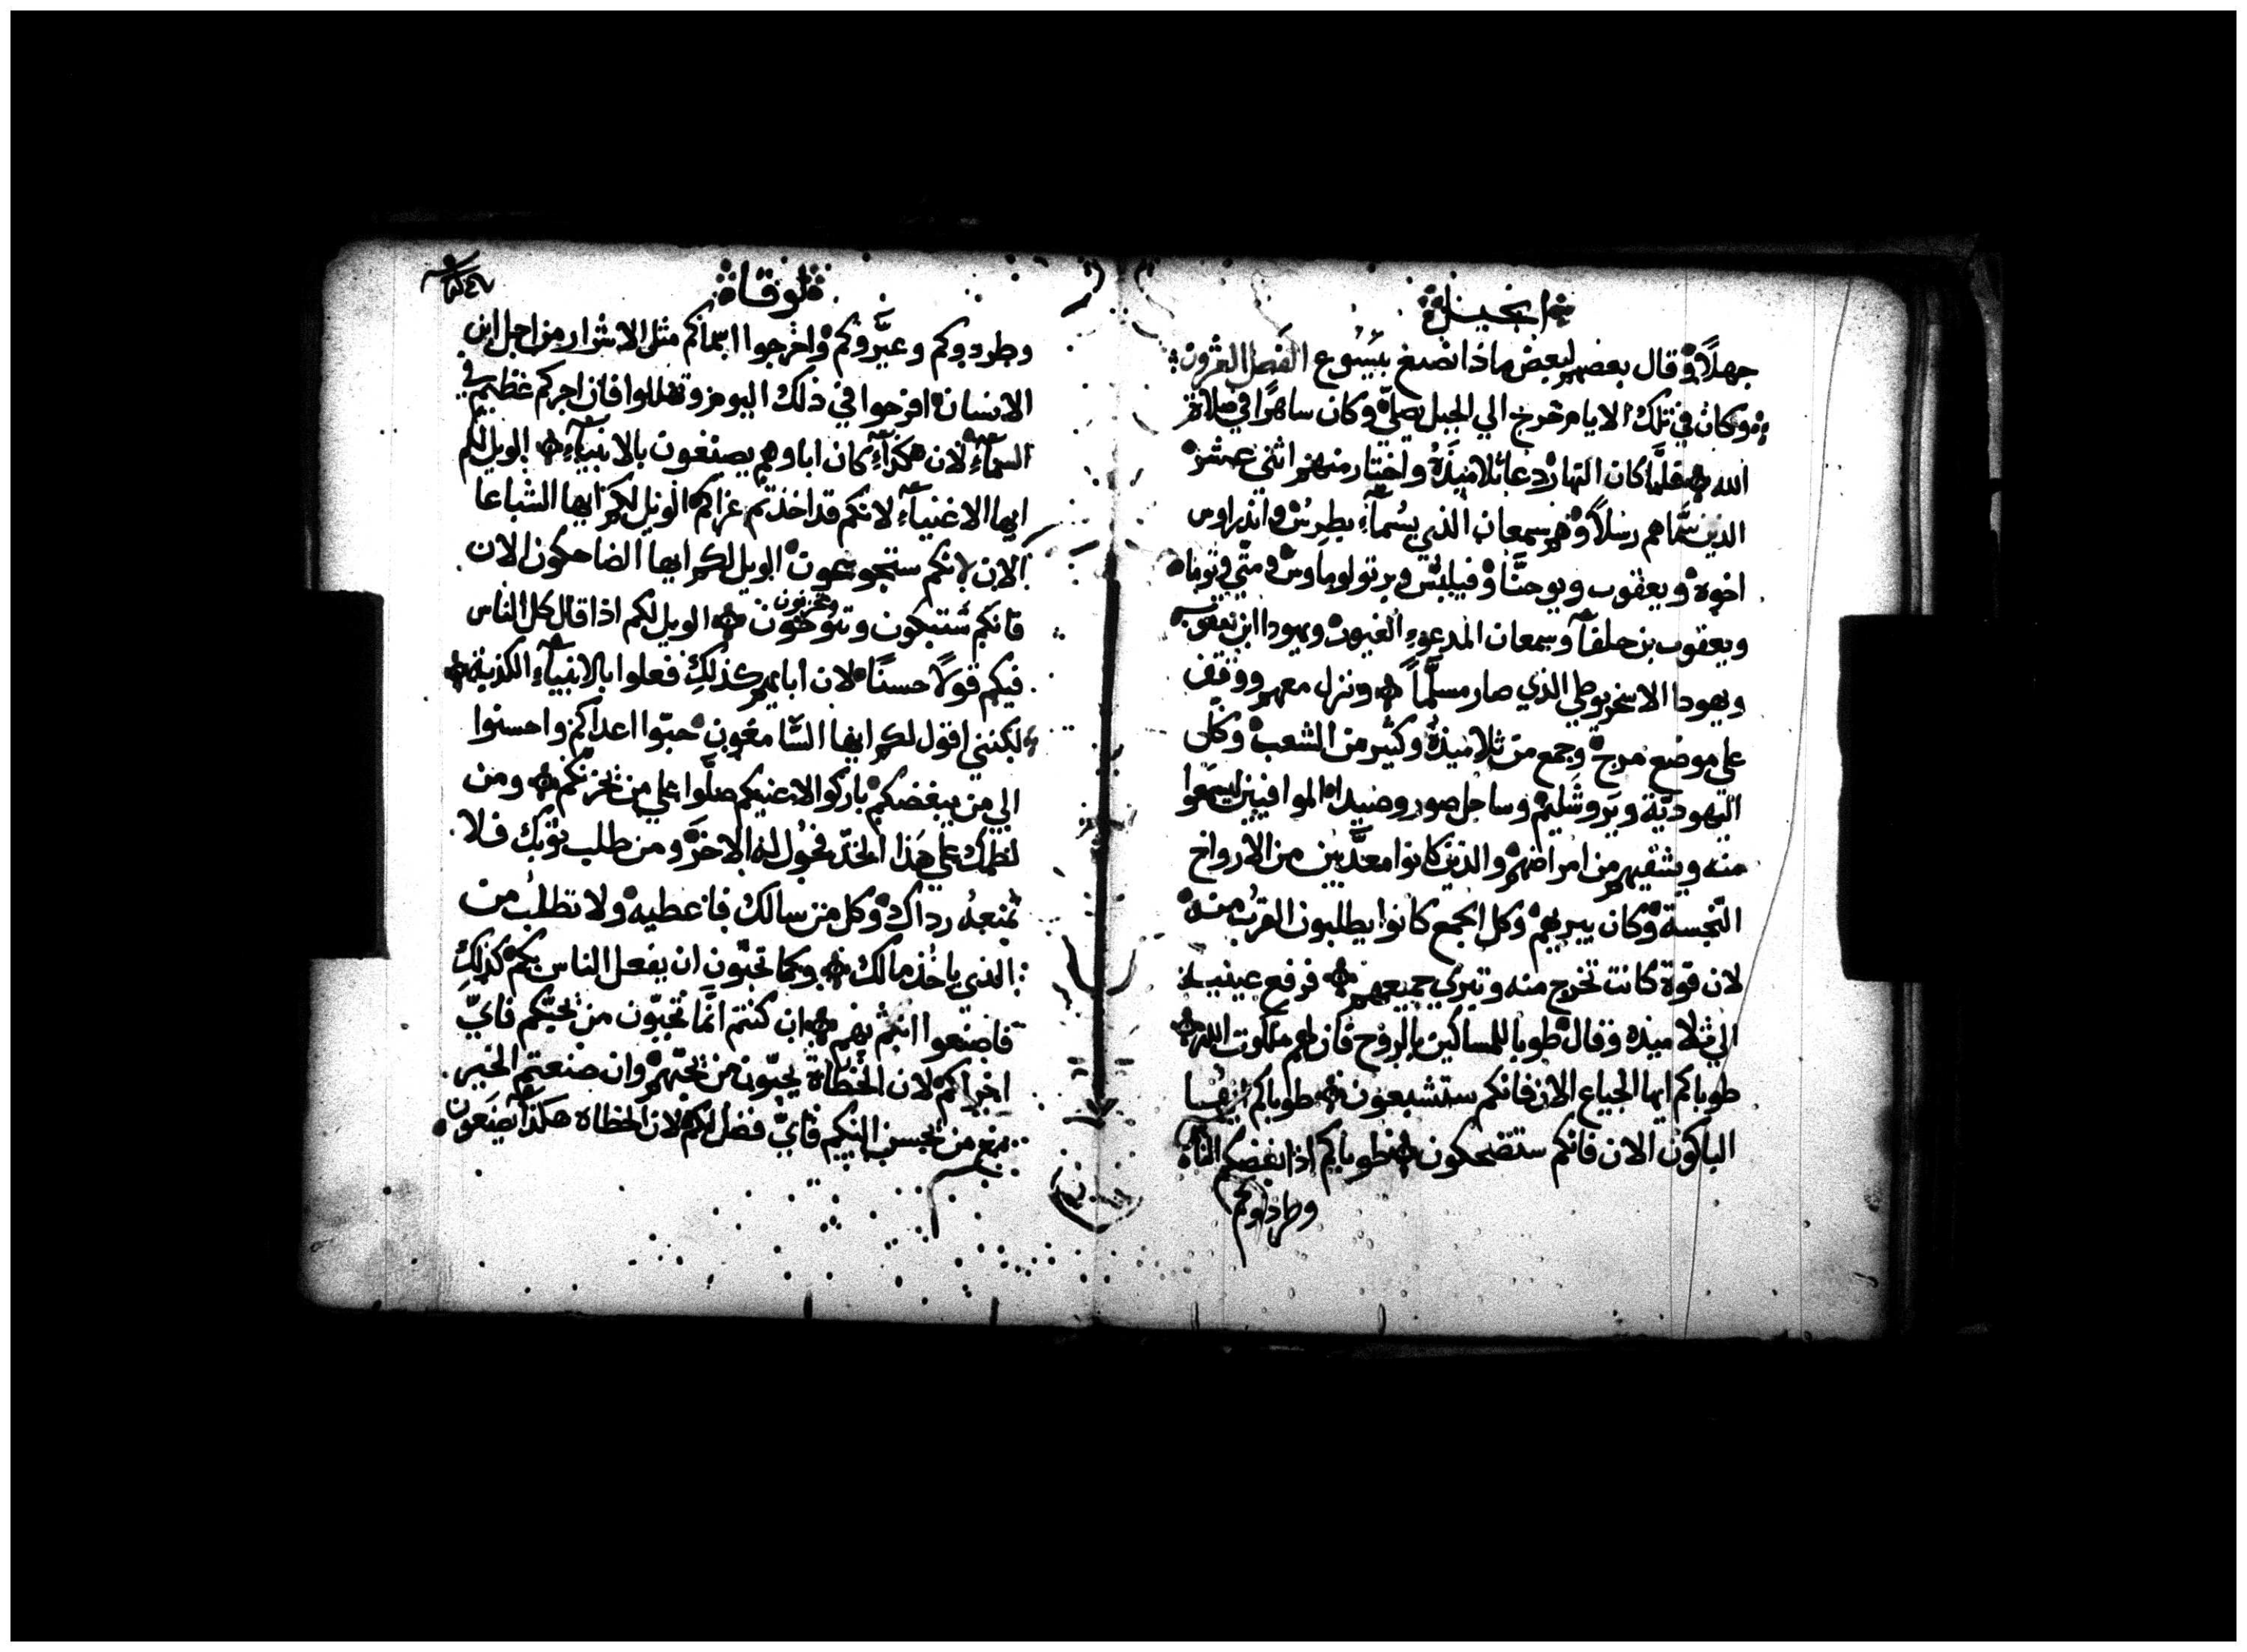 انجيل
جهلاً وقال بعضهم لبعض ماذا نصنع بيسوع الفصل العشرون
وكان في تلك الايام خرج الي الجبل يصلّي وكان ساهرًا في صلاة
الله فلمَّا كان النهار دعا تلاميذهُ واختار منهم اثني عشر
الذين سمَّاهم رسلاً وهم سمعان الذي يسُمآء بطرس واندراوس
اخوه ويعقوب ويوحنَّا وفيلبس وبرتولوماوس ومتّي وتوما
ويعقوب بن حلفآ وسمعان المدعوء الغيور ويهودا ابن يعقوب
ويهودا الاسخريوطي الذي صار مسلّماً ونزل معهم ووقف
علي موضع مرج وجمع من تلاميذه وكثير من الشعب وكل
اليهوديّة ويروشليم وساحل صور وصيدا الموافيين ليسمعوا
منه ويشفيهم من امراضهم والذين كانوا معذَّبين من الارواح
النّجسة وكان يبريهم وكل الجمع كانوا يطلبون القرب منه
لان قوّة كانت تخرج منه وتبري جميعهم فرفع عينيه
الي تلاميذه وقال طوبا للمساكين بالروح فان لهم ملكوت الله
طوباكم ايها الجياع الان فانكم ستشبعون طوباكم ايها
الباكون الان فانكم ستضحكون طوباكم اذا بغضكم الناس
وطردوكم
لوقا
وطردوكم وعيَّروكم واخرجوا اسماكم مثل الاشرار من اجل ابن
الانسان افرحوا في ذلك اليوم وتهللوا فان اجركم عظيم في
السمآء لان هكذا كان اباوهم يصنعون بالانبيآء الويل لكم
ايها الاغنيآء لانكم قد اخذتم عزاكم الويل لكم ايها الشباعا
الان لانكم ستجوعون الويل لكم ايها الضاحكون الان
فانكم ستبكون وتنوحون وتحزنون الويل لكم اذا قال كل الناس
فيكم قولاً حسنًا لان اباهم كذلك فعلوا بالانبيآء الكذبة
لكنني اقول لكم ايها السّامعون حبّوا اعداكم واحسنوا
الي من يبغضكم باركوا لاعنيكم صلّوا علي من يحزنكم ومن
لطمك علي هذا الخدّ فحوّل له الاخر ومن طلب ثوبك فلا
تمنعه رداك وكل من سالك فاعطيه ولا تطلب من
الذي ياخذ مالك وكما تحبّون ان يفعل الناس بكم كذلك
فاصنعوا انتم بهم ان كنتم انّما تحبّون من يحبّكم فايّ
اجر لكم لان الخطاة يحبّون من يحبّهم وان صنعتم الخير
مع من يحسن اليكم فايّ فضل لكم لان الخطاه هكذا يصنعون